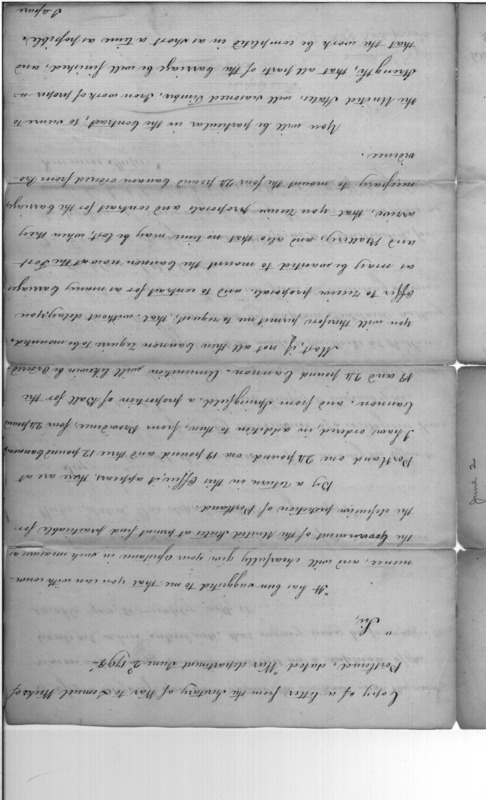 Copy of a letter from the Secretary of War to Lemuel Weeks of
Portland, dated "War department June 2d 1798"
"Sir,
"It has been suggested to me that you can with conve-
nience, and will chearfully give your assistance in such measures as
the Government of the United States at present find practicable for
the defensive protection of Portland.
By a return in this Office, it appears there are at
Portland one 24 pound, one 18 pound and three 12 pound Cannon,
I have ordered, in addition to them, from Providence four 24 pound
Cannon, and, from Springfield, a proportion of Ball for the
18 and 24 pound Cannon - Ammunition will likewise be ordered
Most, if not all these Cannon require to be mounted.
you will therefore permit me to request, that, without delay, you
offer to receive proposals, and to contract for as many Carriages
as may be wanted to mount the Cannon now at the Fort
and Battery, and also that no time may be lost, when they
arrive, that you receive proposals and contract for the Carriages
necessary to mount the four 24 pound Cannon ordered from Pro
vidence.
You will be particular in the Contract, to secure to
the United States, well seasoned Timber, Iron work of proper
strength, that all parts of the Carriage be well finished, and
that the work be completed in as short a time as possible.
June 2